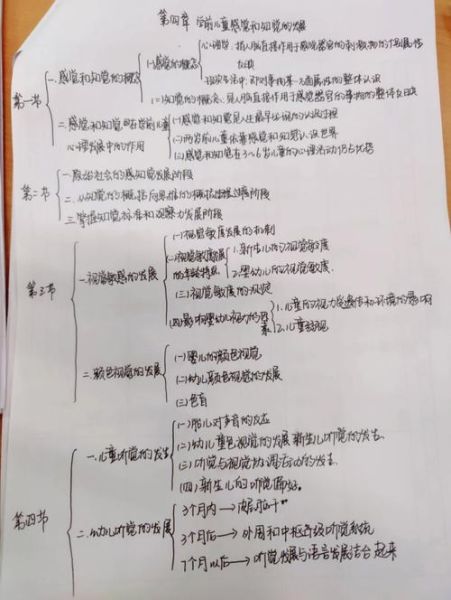 第四章 学前儿童感觉和知觉的发展
第一节
一.感觉和知觉的概念
(一)感觉的概念
心理学：指人脑直接作用于感觉器官的刺激物的个别属性
反映
日常生活中：即对事物某一方面属性的整体认识
(二)知觉的概念：是人脑直接作用于感觉器官的事物的整体反映
二.感觉和知觉在学前儿童
心理发展中的作用
(一)感觉和知觉是人生最早出现的认识过程
(二)两岁前儿童依靠感觉和知觉认识世界
(三)感觉和知觉在3~6岁儿童的心理活动仍占优势
第二节
一.原始社会的感知觉发展阶段
二.从知觉的概括向思维的概括过渡阶段
三.掌握知觉标准和观察力发展阶段
第三节
一.视觉敏感的发展
(一)视觉敏度发展的机制
(二)视觉敏度发展
的年龄特点
1.新生儿的视觉敏度
2.婴幼儿的视觉敏度
(三)视觉敏度的
(四)影响婴幼儿视力的因
素
1.儿童的视力受遗传和环境的影响
2.儿童弱视
二.颜色视觉的发展
(一)婴儿的颜色视觉
(二)幼儿颜色视觉的发展
(三)色盲
第四节
一.儿童听觉的发生
(一)胎儿对声音的反应
(二)幼儿颜色视觉的发展 新生儿听觉的发生
(三)听觉与视觉协调活动的发生
(四)新生儿的听觉偏好
二.幼儿听觉的发展
3个月内→
3个月后→外周和中枢各级听觉系统
7个月以后→听觉发展与语言发展结合起来